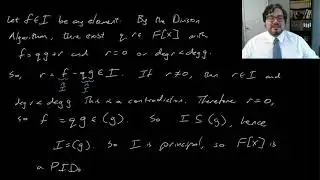 Let f∈I be any element. By the Division
Algorithm, there exist q, r∈ F[x] with
f = qg+r and r=0 or deg r < deg g.
So, r = f - qg ∈ I. If r≠0, then r∈I and
deg r < deg g. This is a contradiction. Therefore r=0,
so f = qg ∈ (g). So I ⊆ (g), hence
I=(g). So I is principal, so F[x] is
a PID.